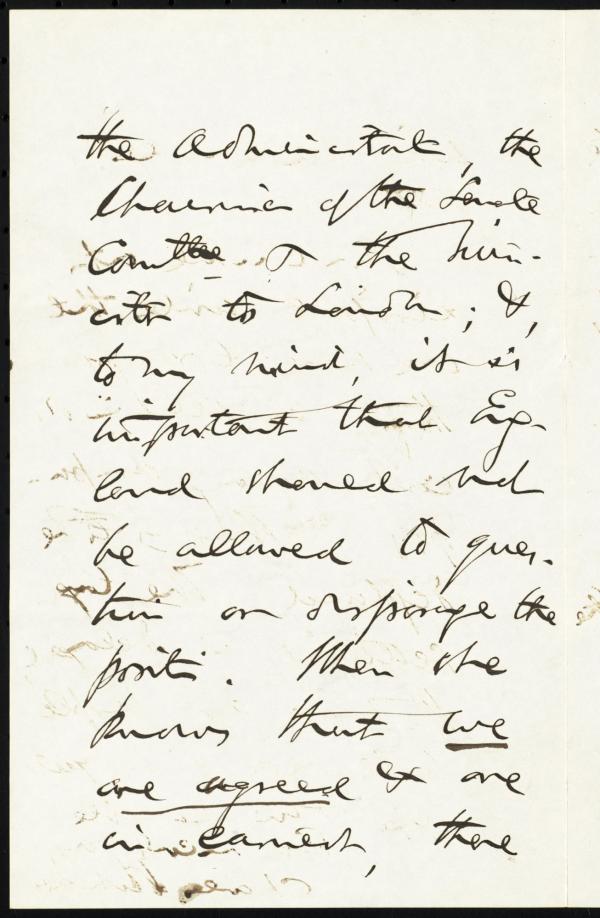 the Administrat, the
Chairman of the Senate
Comttee & the Min-
ister to London; &,
to my mind, it is
important that Eng-
land should not
be allowed to ques-
tion or disparage the
position. When she
knows that we
are agreed & are
in earnest, there